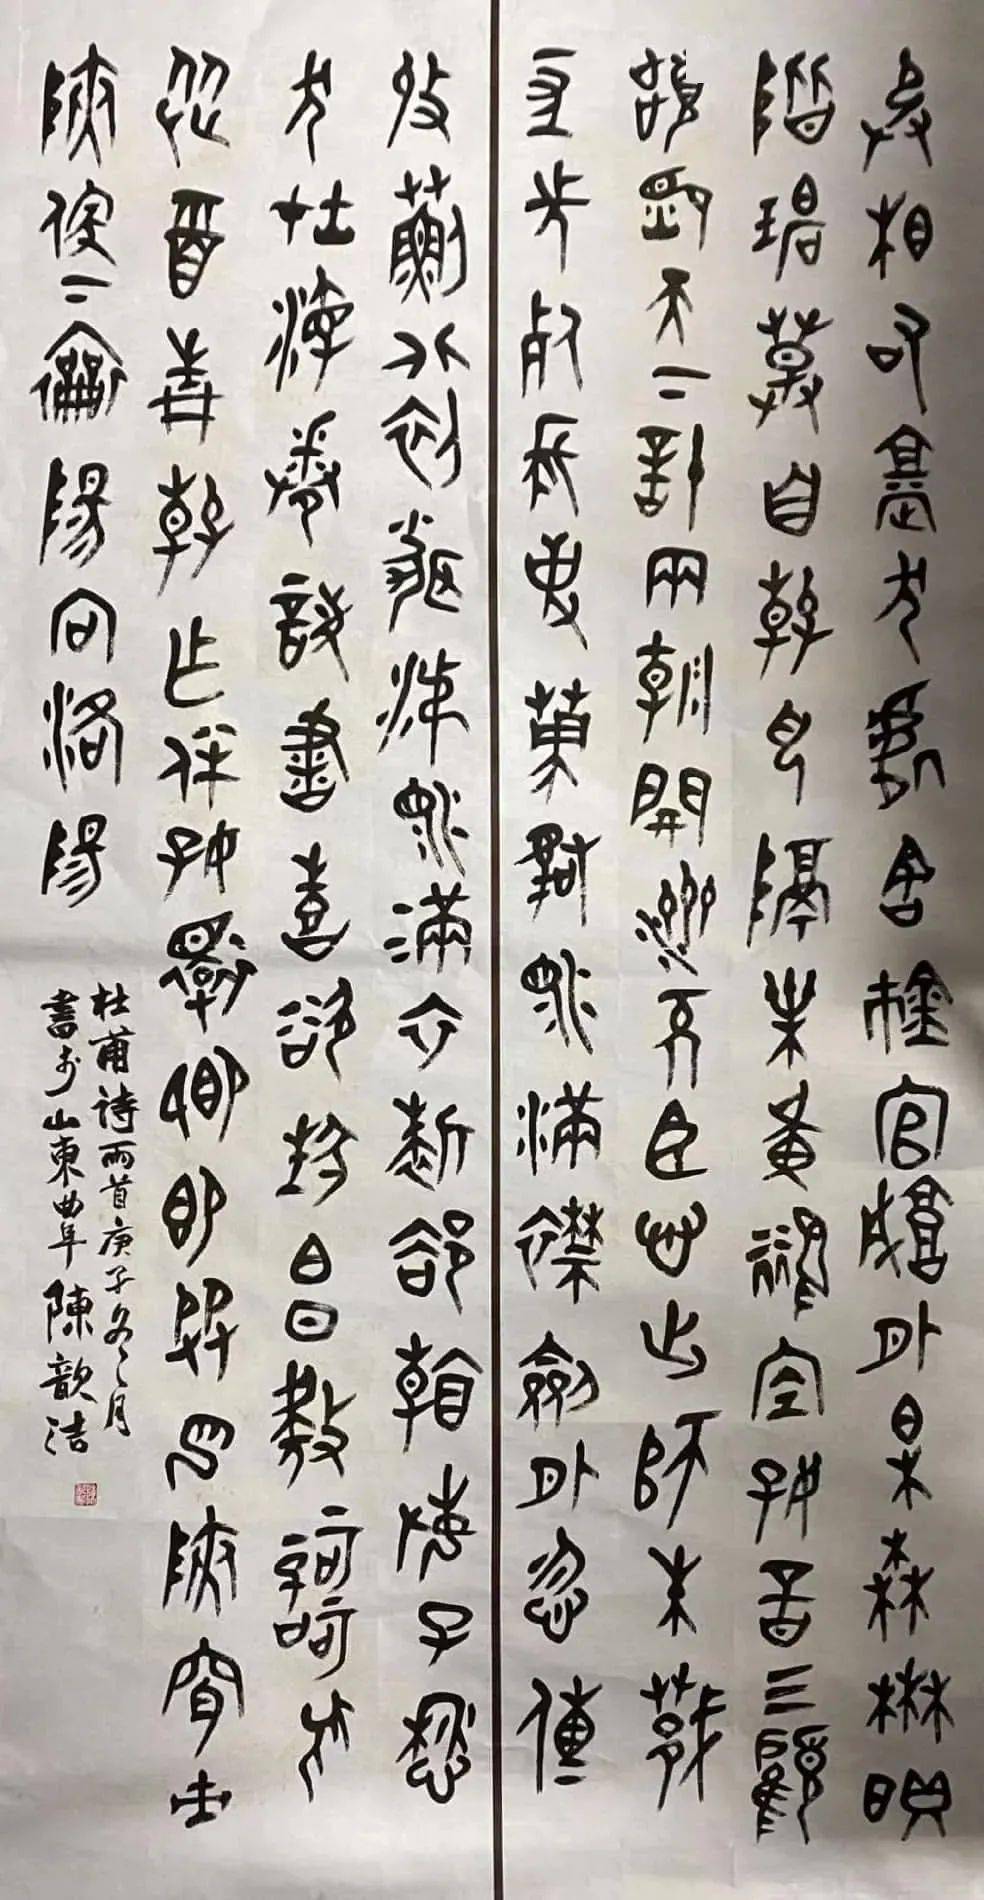 丞相祠堂何處尋錦官城外柏森森映
階碧草自春色隔葉黃鸝空好音三顧
頻煩天下計兩朝開濟老臣心出師未捷
身先死長使英雄淚滿襟劍外忽傳
收薊北初聞涕淚滿衣裳卻看妻子愁
何在漫卷詩書喜欲狂白日放歌須
縱酒青春作伴好還鄉即從巴峽穿巫
峽便下襄陽向洛陽
杜甫詩兩首庚子冬之月
書於山東曲阜陳歆洁